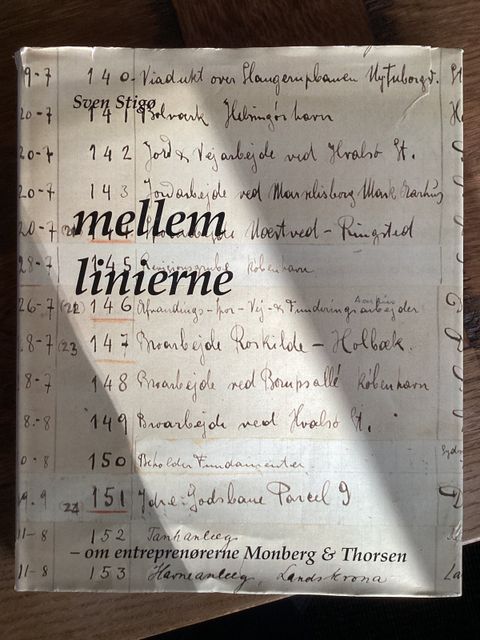 9-7 140- Viadukt over Slangerupbanen Nyborgv. St
Sven Stigø
20-7 141 Bolværk Helsingørs havn
20-7 142 Jord & Vejarbejde ved Hvalsø St.
20-7 143 Jordarbejde ved Marselisborg Mark Aarhus
mellem
20-7 Næstved - Ringsted
28-7 145 København
linierne
26-7 (22) 146 Afvandings- spor- Vej- & Funderings arbejder
8-7 (23 147 Broarbejde Roskilde - Holbæk.
8-7 148 Broarbejde ved Borups allé København
8.-8 149 Broarbejde ved Hvalsø St.
0-8 150 Beholder Fundamenter
9.9 24 151 Ydre-Godsbane Parcel 9
11-8 152 Tankanlæg
– om entreprenørerne Monberg & Thorsen
11-8 153 Havneanlæg, Landskrona La